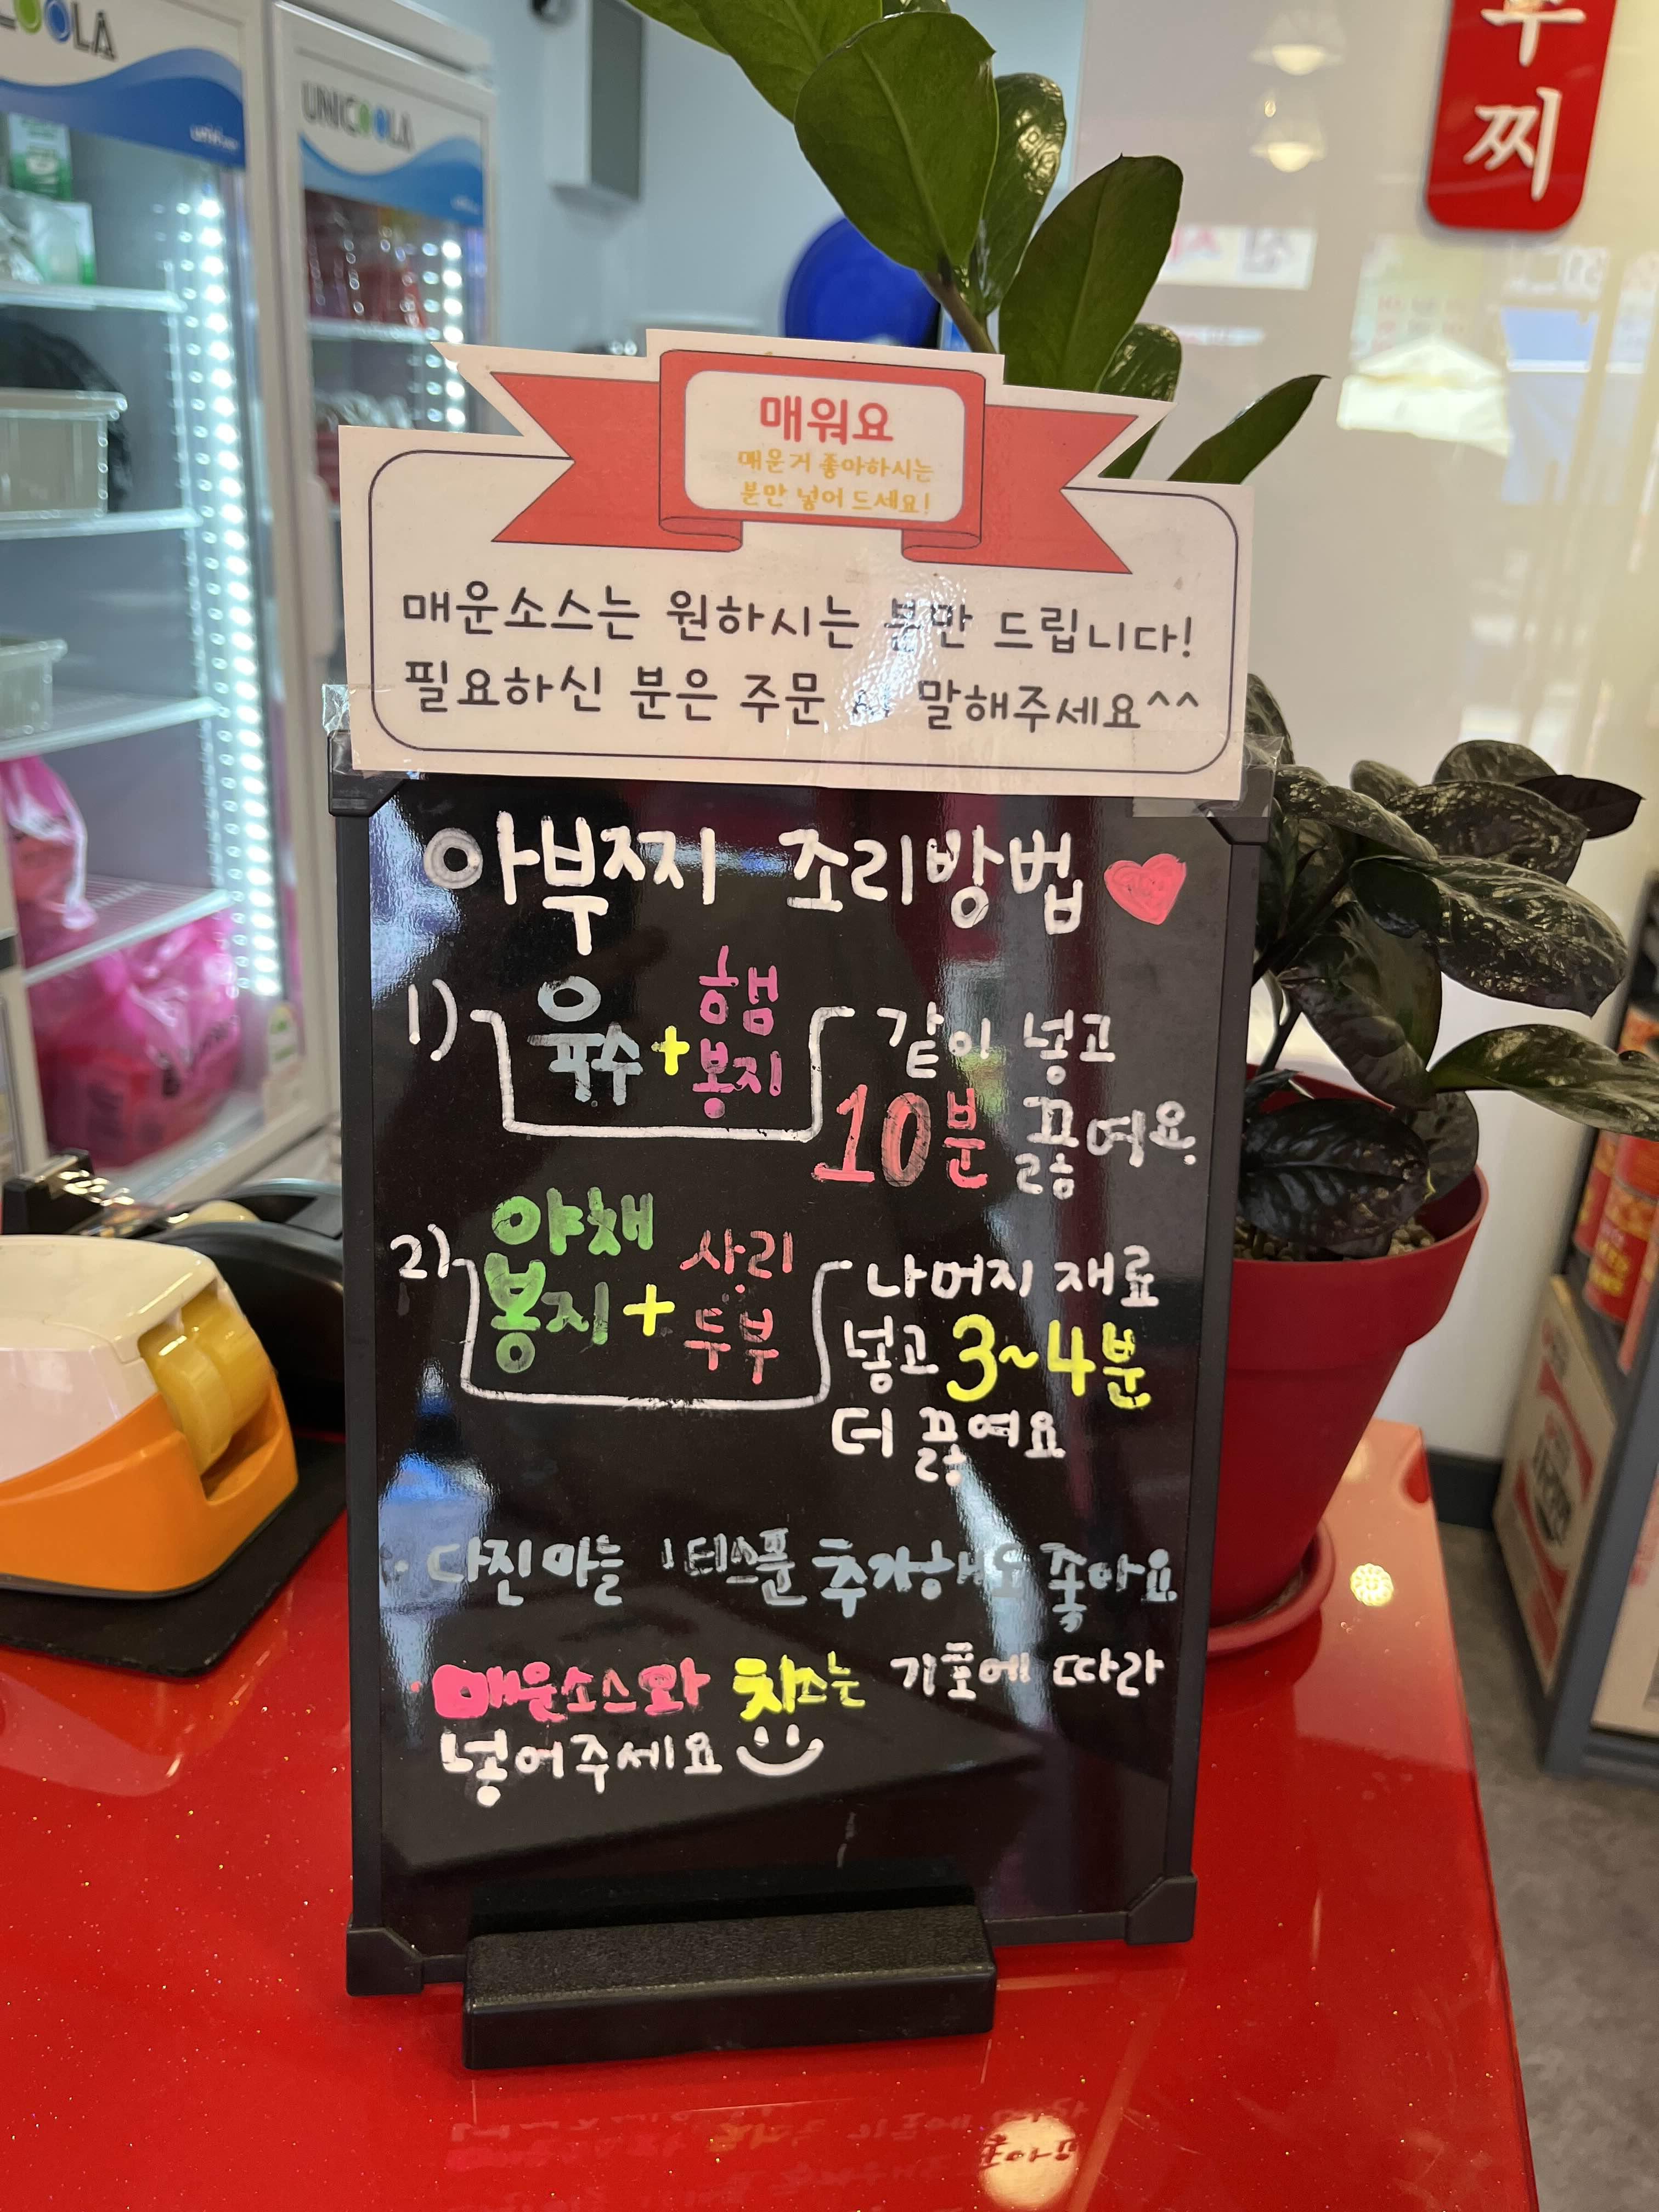 UNICOOLA
찌
매워요
매운거 좋아하시는
분만 넣어 드세요!
매운소스는 원하시는 분만 드립니다!
필요하신 분은 주문 시 말해주세요^^
아부찌 조리방법
1) 육수 + 햄봉지 같이 넣고
10분 끓여요.
2) 야채봉지 + 사리 두부 나머지 재료
넣고 3~4분
더 끓여요
· 다진마늘 1티스푼 추가해도 좋아요
· 매운소스와 치즈는 기호에 따라
넣어주세요